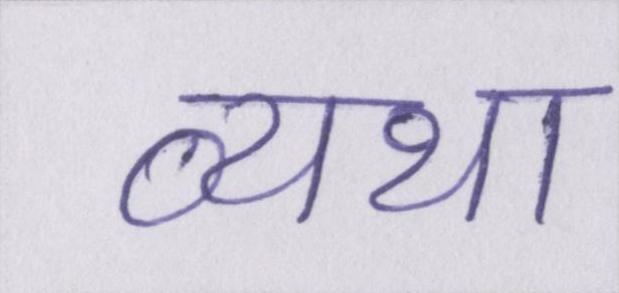 व्यथा